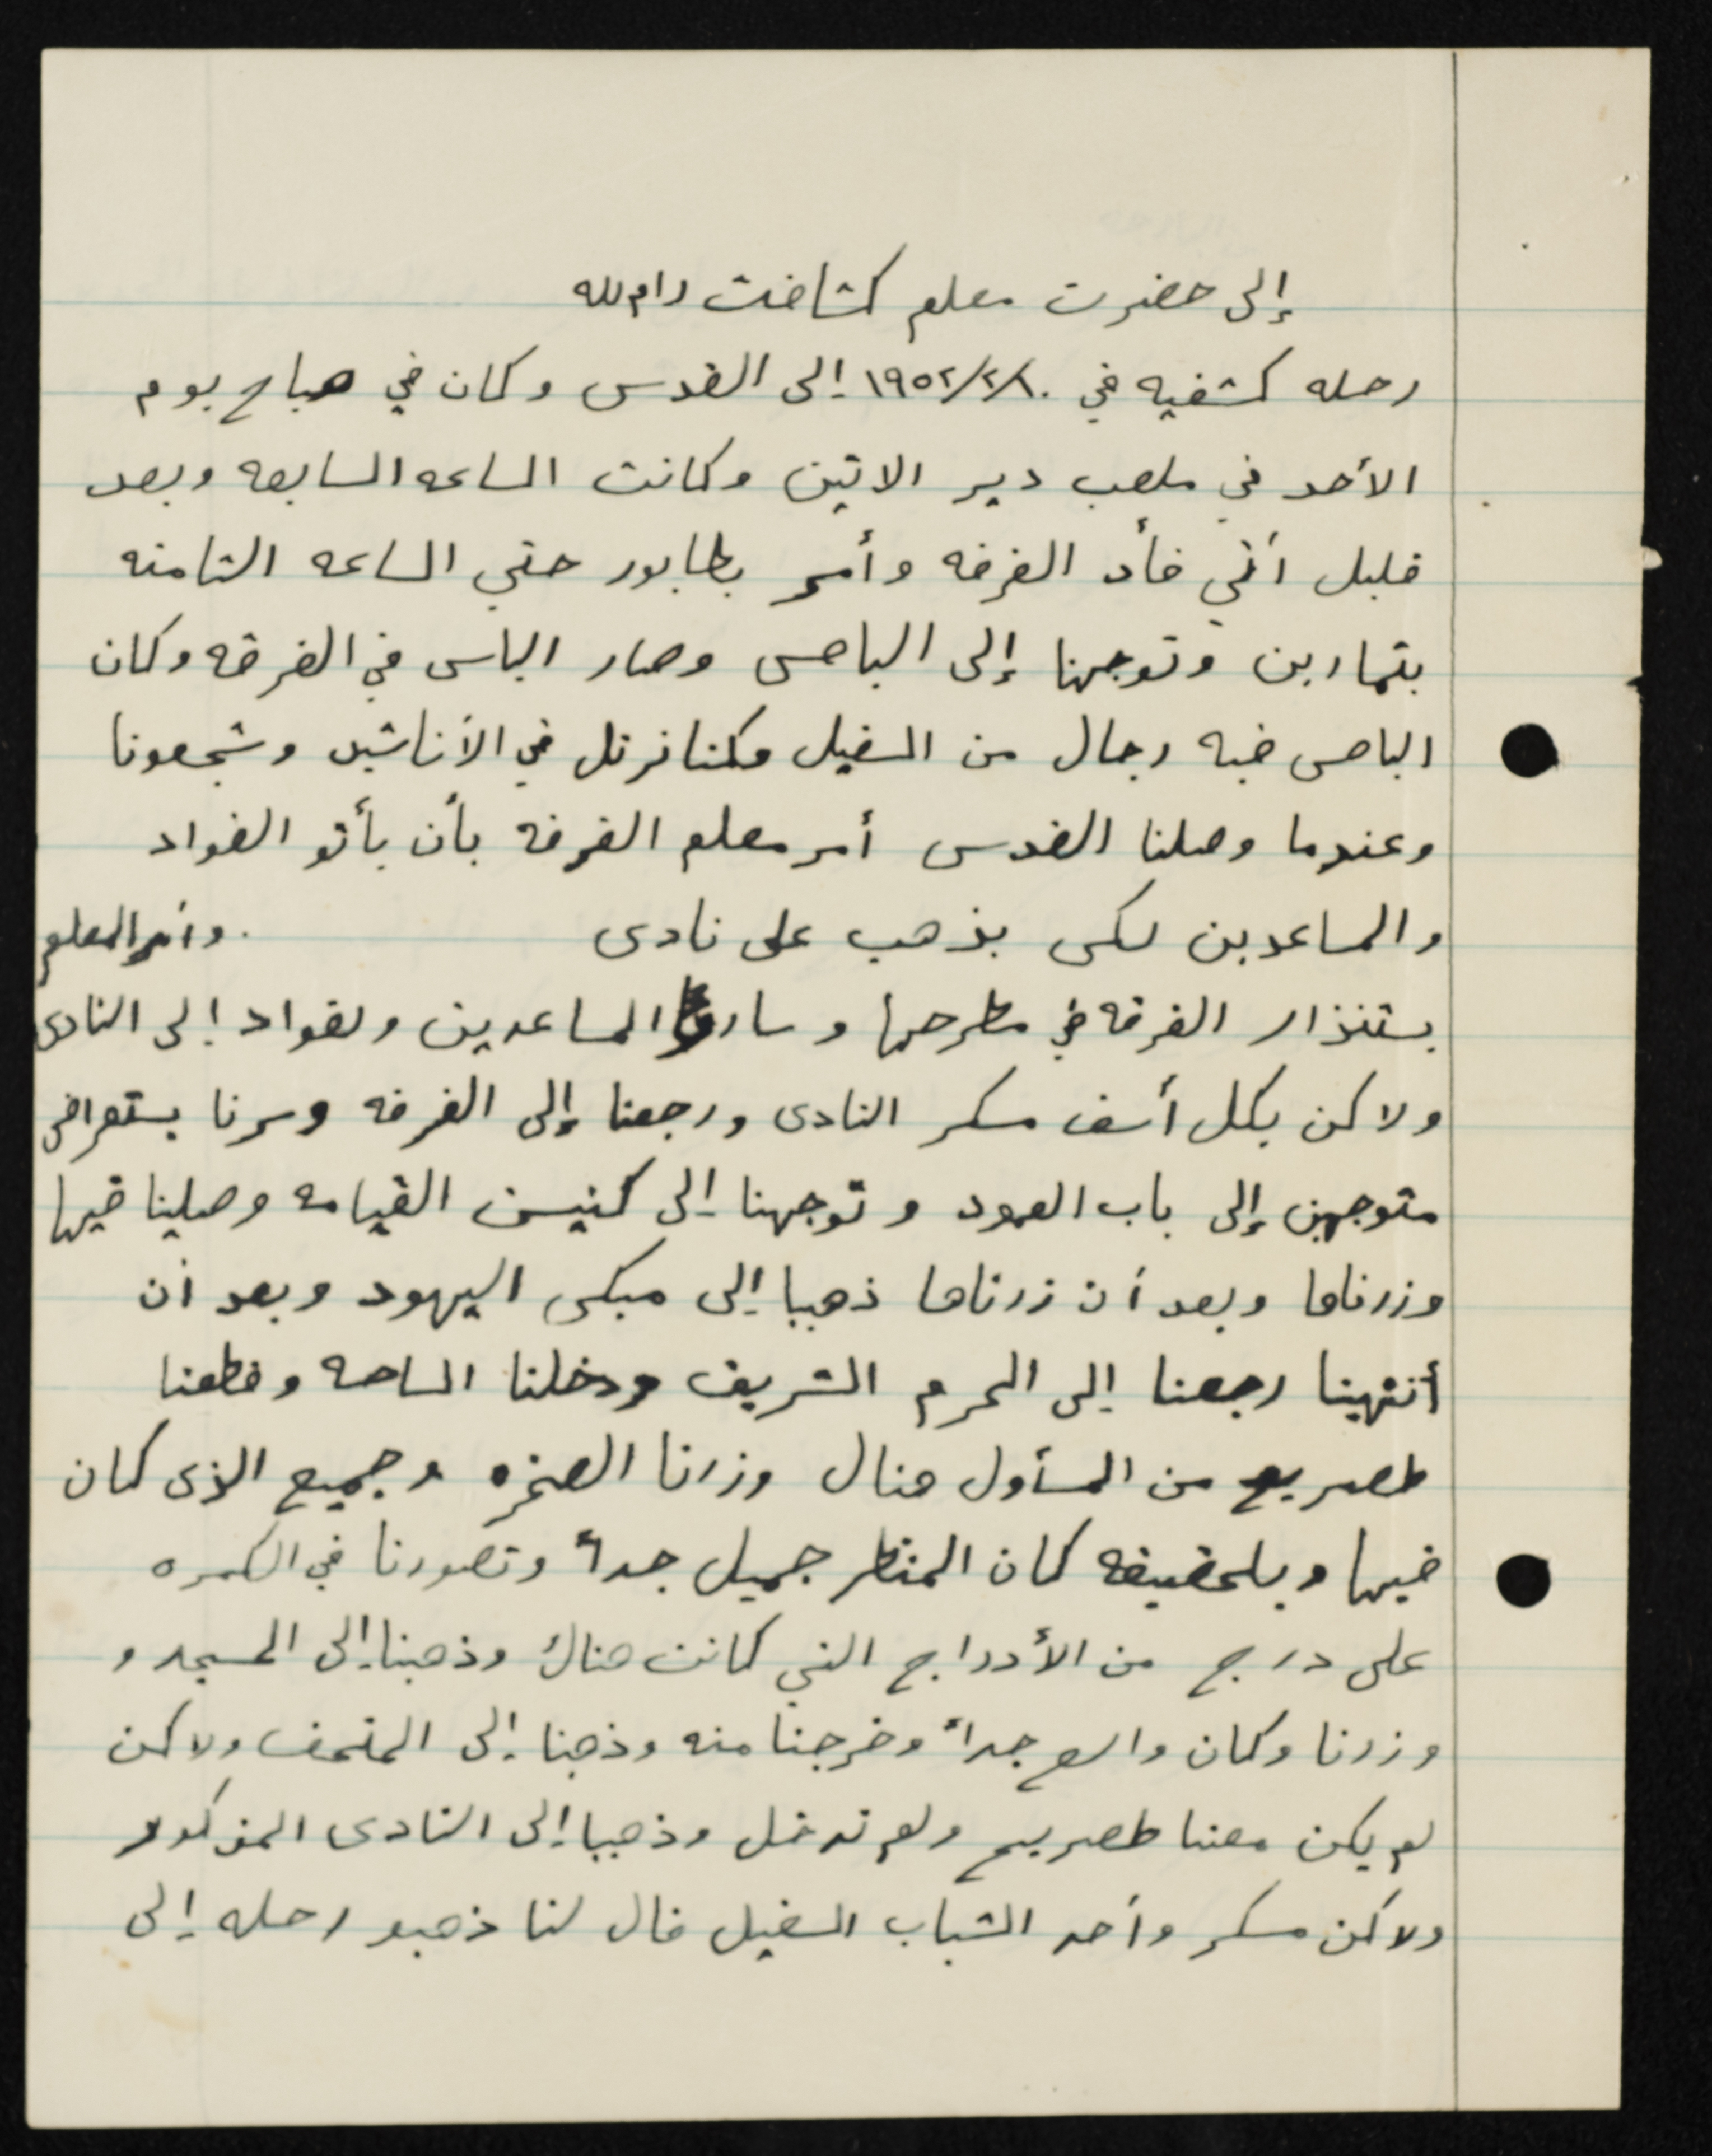 إلى حضرت معلم كشافت رام لله
رحله كشفيه في ١٩٥٢/٢/١٠ إلى القدس وكان في صباح يوم
الأحد في ملعب دير الاتين وكانت الساعه السابعه وبعد
قليل أتي قأد الفرقه وأمر بطابور حتي الساعه الثامنه
بتمارين وتوجهنا إلى الباص وصار الباس في الفرقه وكان
الباص فيه رجال من السفيل وكنا نرتل في الأناشيد وشجعونا
وعندما وصلنا القدس أمر معلم الفرقه بأن يأتو القواد
والمساعدين لكى يذهب على نادى . وأمر المعلم
بستنذار الفرقه في مطرحها وسارو المساعدين ولقواد إلى النادى
ولاكن بكل أسف مسكر النادى ورجعنا إلى الفرقه وسرنا بستعراض
متوجهين إلى باب العمود وتوجهنا إلى كنيست القيامه وصلينا فيها
وزرناها وبعد أن زرناها ذهبا إلى مبكى اليهود وبعد أن
أنتهينا رجعنا إلى الحرم الشريف ودخلنا الساحه وقطعنا
طصريح من المسأول هناك وزرنا الصخره وجميع الذى كان
فيها وبلحقيقه كان المنظر جميل جدأ وتصورنا في الكمره
على درج من الأدراج التي كانت هناك وذهبنا إلى المسجد و
وزرنا وكان واسع جدأ وخرجنا منه وذهبنا إلى المتحف ولاكن
لم يكن معنا طصريح ولم ندخل وذهبا إلى النادى المذكور
ولاكن مسكر وأحد الشباب السفيل قال لنا ذهبو رحله إلى